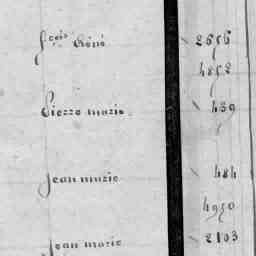 fçois Réné 2656
4852
Pierre marie 439
Jean marie 484
4950
Jean marie 2103